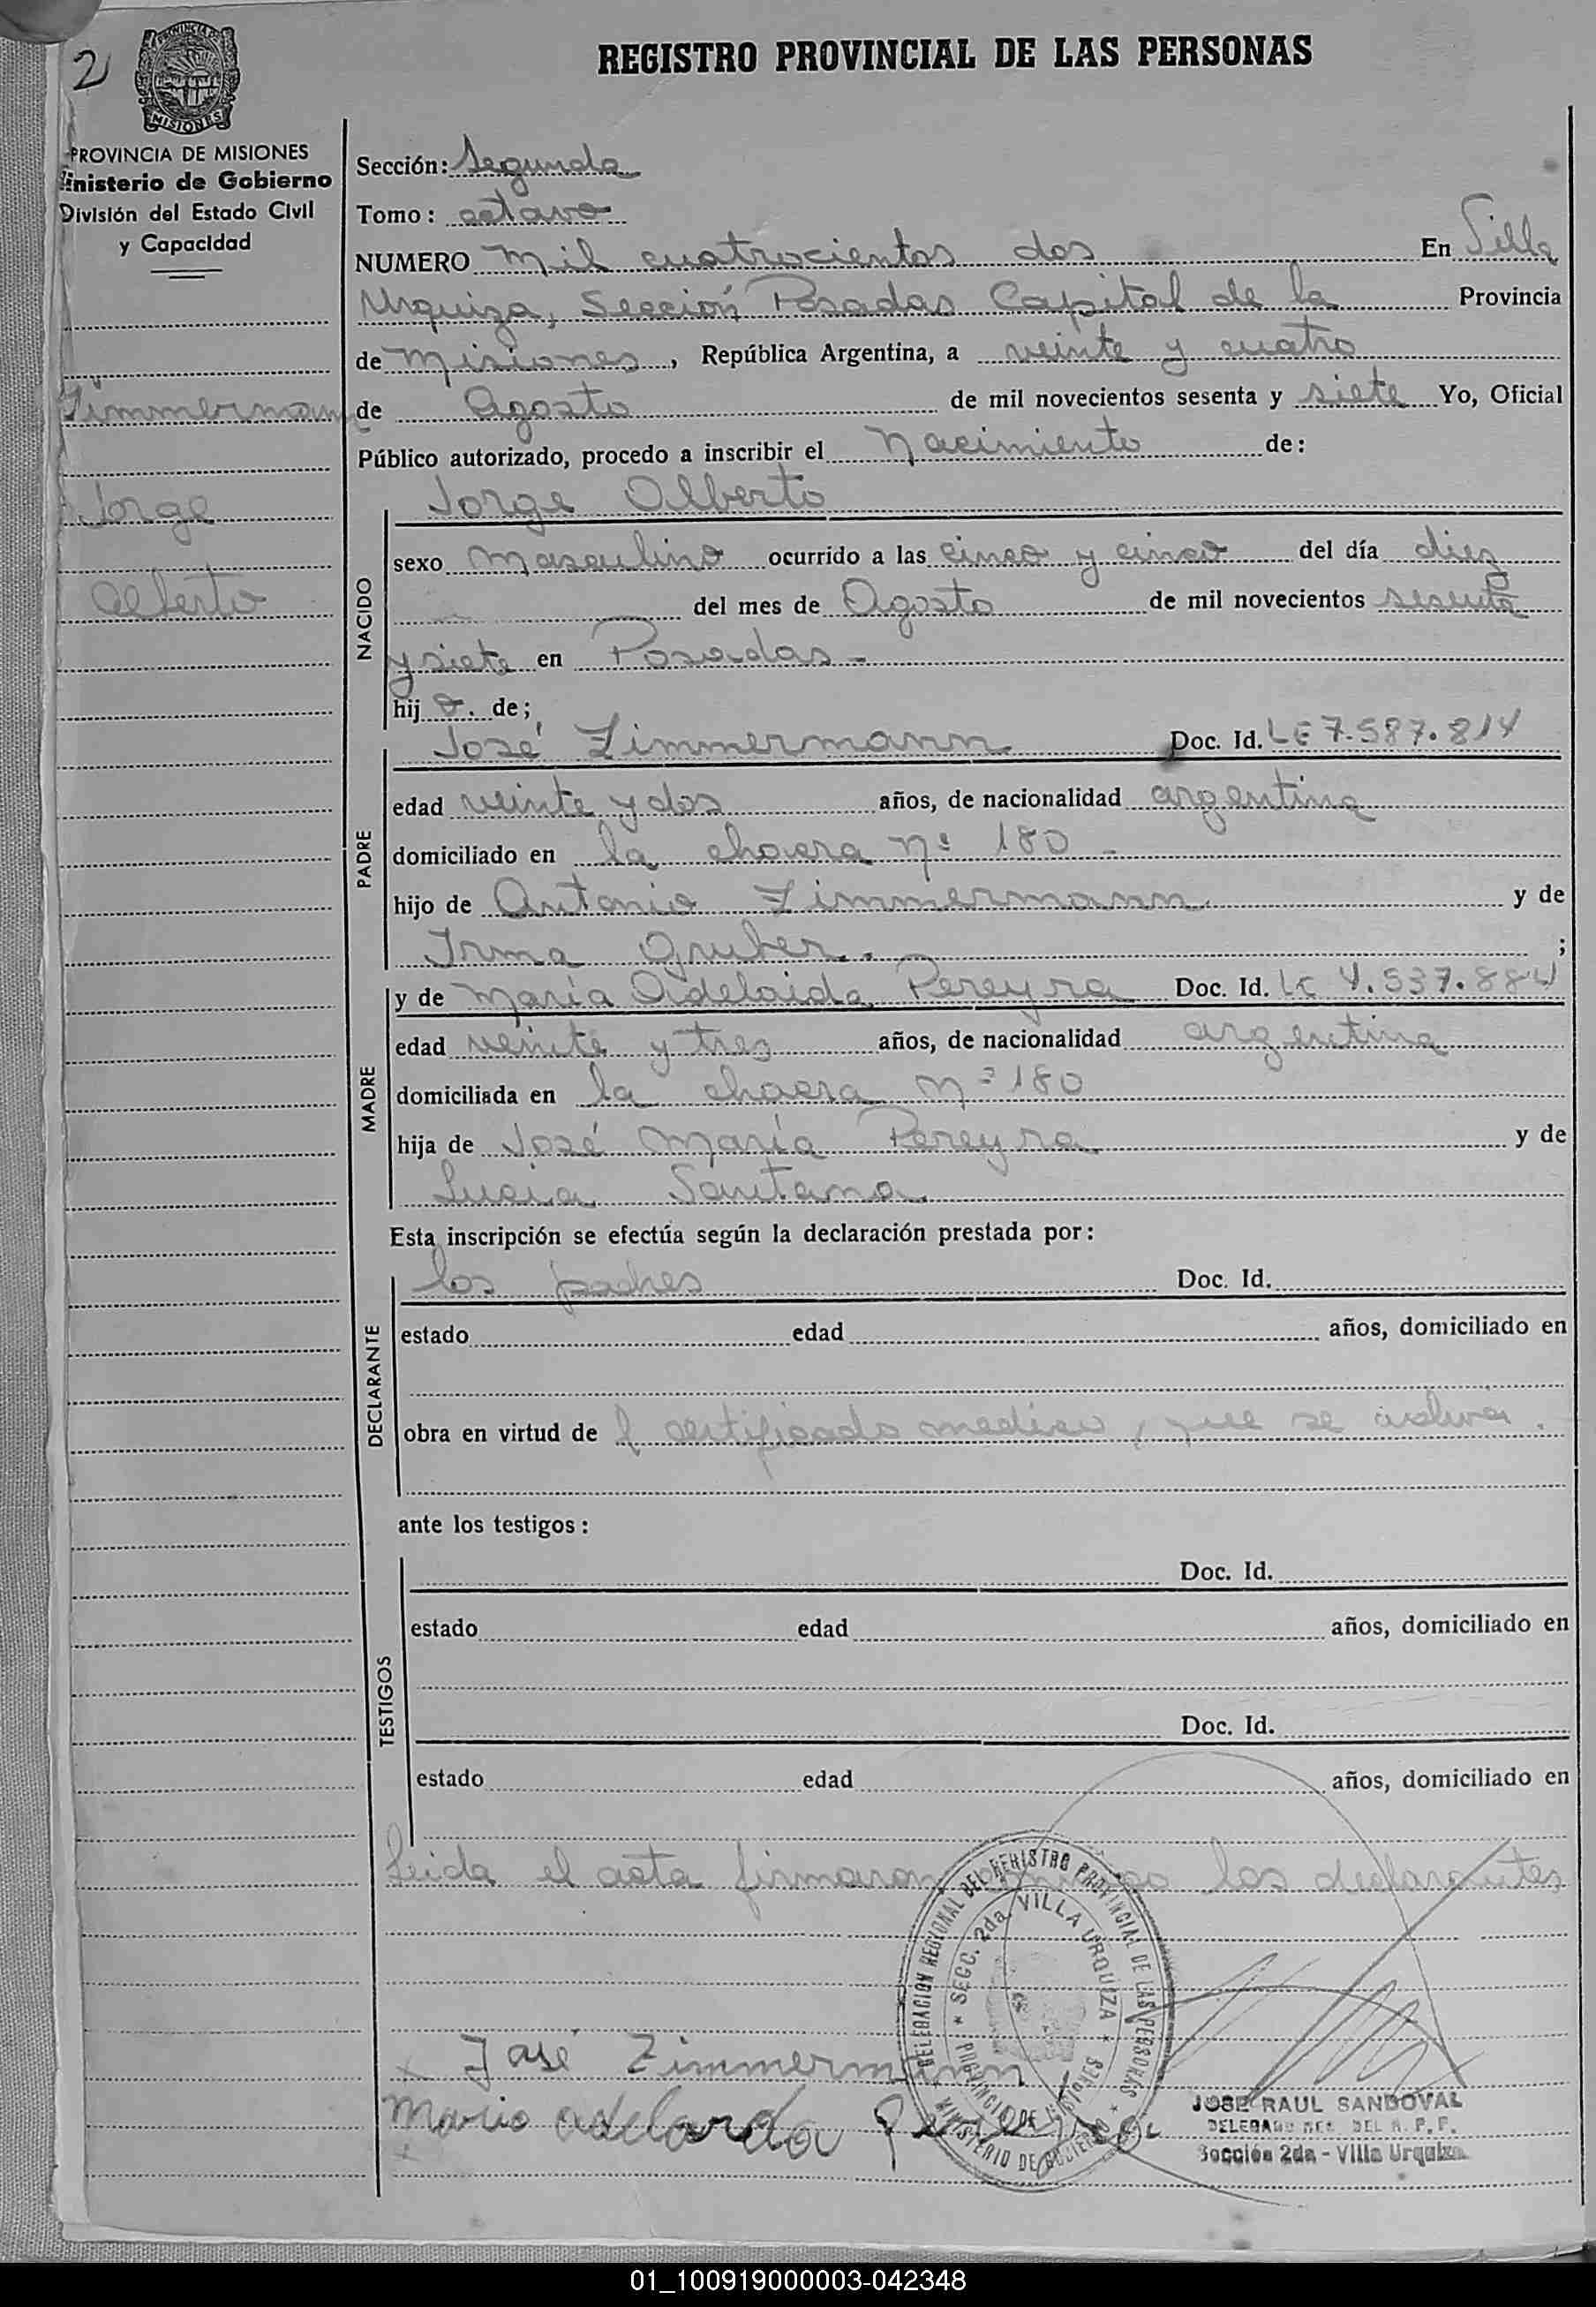 2
REGISTRO PROVINCIAL DE LAS PERSONAS
MISIONES
PROVINCIA DE MISIONES
Ministerio de Gobierno
División del Estado Civil
y Capacidad
Zimmermann
Jorge
Alberto
Sección: Segunda
Tomo: octavo
NUMERO mil cuatrocientos dos En Villa
Urquiza, Sección Posadas Capital de la Provincia
de Misiones, República Argentina, a veinte y cuatro
de Agosto de mil novecientos sesenta y siete Yo, Oficial
Público autorizado, procedo a inscribir el Nacimiento de:
NACIDO
Jorge Alberto
sexo masculino ocurrido a las cinco y cinco del día diez
del mes de Agosto de mil novecientos sesenta
y siete en Posadas -
hijo. de;
PADRE
José Zimmermann Doc. Id. LE 7.587.814
edad veinte y dos años, de nacionalidad argentina
domiciliado en la chacra nº 180 -
hijo de Antonio Zimmermann y de
Irma Gruber. ;
MADRE
y de María Adelaida Pereyra Doc. Id. LC 4.537.884
edad veinte y tres años, de nacionalidad argentina
domiciliada en la chacra nº 180
hija de José María Pereyra y de
Lucia Santana
Esta inscripción se efectúa según la declaración prestada por:
DECLARANTE
los padres Doc. Id.
estado edad años, domiciliado en
obra en virtud de l certificado medico, que se archiva.
ante los testigos:
TESTIGOS
Doc. Id.
estado edad años, domiciliado en
Doc. Id.
estado edad años, domiciliado en
Leida el acta firmaron conmigo los declarantes
DELEGACION REGIONAL DEL REGISTRO PROVINCIAL DE LAS PERSONAS
SECC. 2da. VILLA URQUIZA
PROVINCIA DE MISIONES
MINISTERIO DE GOBIERNO
x José Zimmermann
Maria adelaida Pereyra
x
JOSE RAUL SANDOVAL
DELEGADO REG. DEL R. P. P.
Sección 2da - Villa Urquiza
01_100919000003-042348